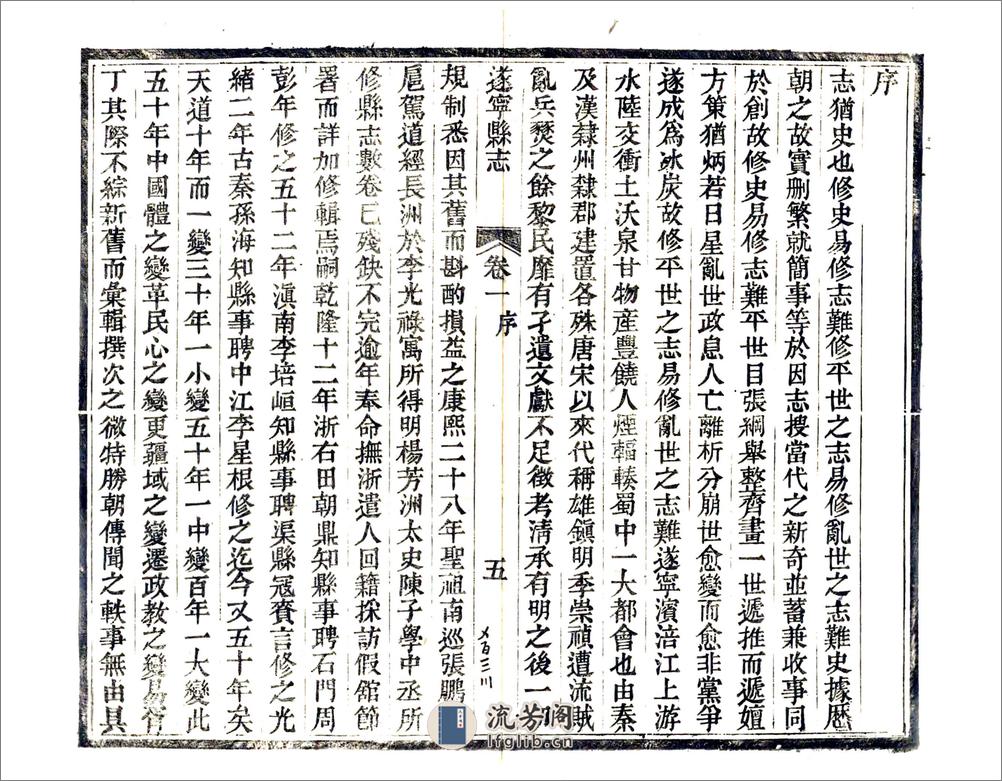 序
志猶史也修史易修志難修平世之志易修亂世之志難史據歷
朝之故實删繁就簡事等於因志搜當代之新奇並蓄兼收事同
於創故修史易修志難平世目張綱舉整齊畫一世遞推而遞嬗
方策猶炳若日星亂世政息人亡離析分崩世愈變而愈非黨爭
遂成爲冰炭故修平世之志易修亂世之志難遂寧濱涪江上游
水陸交衝土沃泉甘物産豐饒人煙輻輳蜀中一大都會也由秦
及漢隸州隸郡建置各殊唐宋以來代稱雄鎭明季崇禎遭流賊
亂兵燹之餘黎民靡有孑遺文獻不足徵考淸承有明之後一切
遂寧縣志
卷一
序
五
規制悉因其舊而斟酌損益之康熙二十八年聖祖南巡張鵬
扈駕道經長洲於李光祿寓所得明楊芳洲太史陳子學中丞所
修縣志數卷已殘缺不完逾年奉命撫浙遣人回籍採訪假館節
署而詳加修輯焉嗣乾隆十二年浙右田朝鼎知縣事聘石門周
彭年修之五十二年滇南李培峘知縣事聘渠縣寇賚言修之光
緒二年古秦孫海知縣事聘中江李星根修之迄今又五十年矣
天道十年而一變三十年一小變五十年一中變百年一大變此
五十年中國體之變革民心之變更疆域之變遷政教之變易
丁其際不綜新舊而彙輯撰次之微特勝朝傳聞之軼事無由具
流芳阁
lfglib.cn